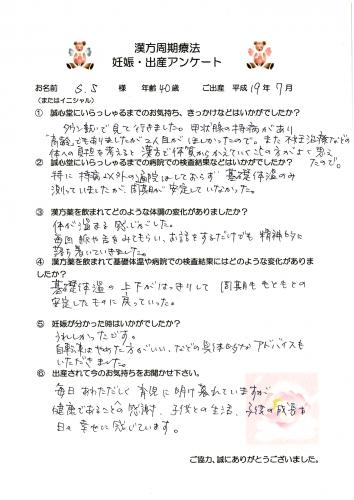 漢方周期療法
妊娠・出産アンケート
お名前 S.S 様 年齢 40 歳 ご出産 平成 19 年 7 月
(またはイニシャル)
① 誠心堂にいらっしゃるまでのお気持ち、きっかけなどはいかがでしたか?
タウン誌で見て行きました。甲状腺の持病があり
高齢でもありましたが2人目がほしかったので。また不妊治療などの
体への負担を考えると漢方で体質から入れていくの方がよいと思えたので。
② 誠心堂にいらっしゃるまでの病院での検査結果などはいかがでしたか?
特に持病以外の通院はしておらず基礎体温のみ
測っていましたが、周期が安定していなかった。
③ 漢方薬を飲まれてどのような体調の変化がありましたか?
体が温まる感じがした。
毎回脈や舌をみてもらい、お話をするだけでも精神的に
落ち着いていきました。
④ 漢方薬を飲まれて基礎体温や病院での検査結果にはどのような変化がありましたか?
基礎体温の上下がはっきりして周期ももともとの
安定したものに戻っていった。
⑤ 妊娠が分かった時はいかがでしたか?
うれしかったです。
自転車はやめた方がいい、などの具体的なアドバイスも
いただきました。
⑥ 出産されて今のお気持ちをお聞かせ下さい。
毎日あわただしく育児に明け暮れていますが
健康であることへの感謝、子供との生活、子供の成長を
日々幸せに感じています。
ご協力、誠にありがとうございました。